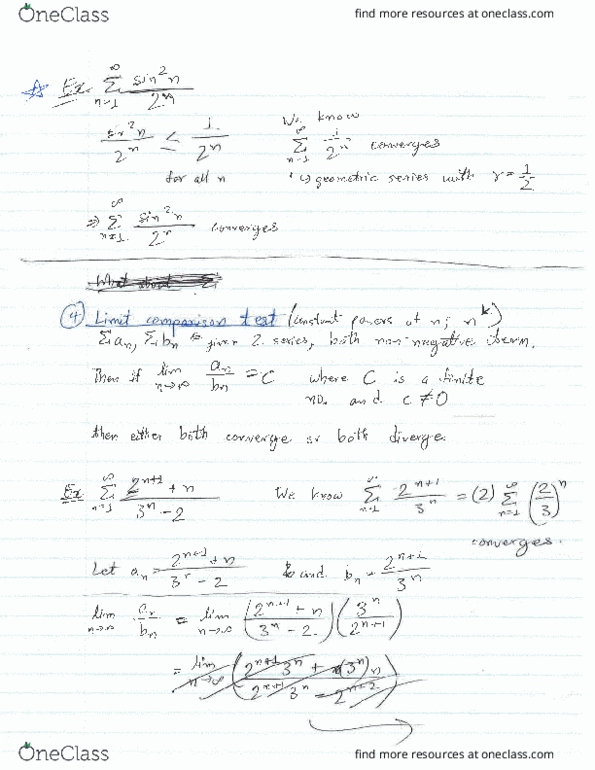 OneClass find more resources at oneclass.com
Ex. ∞ Σ n=1 sin²n / 2ⁿ
sin²n / 2ⁿ ≤ 1 / 2ⁿ We know ∞ Σ n=1 1 / 2ⁿ converges
for all n ↳ geometric series with r = 1/2
⇒ ∞ Σ n=1 sin²n / 2ⁿ converges
What about
④ Limit comparison test (constant powers of n; nᵏ)
Σaₙ, Σbₙ given 2 series, both non-negative
Then if lim n→∞ aₙ / bₙ = C where C is a finite
no. and c ≠ 0
then either both converge or both diverge.
Ex ∞ Σ n=1 2ⁿ⁺¹ + n / 3ⁿ - 2 We know ∞ Σ n=1 2ⁿ⁺¹ / 3ⁿ = (2) ∞ Σ n=1 (2/3)ⁿ
converges.
Let aₙ = 2ⁿ⁺¹ + n / 3ⁿ - 2 and bₙ = 2ⁿ⁺¹ / 3ⁿ
lim n→∞ aₙ / bₙ = lim n→∞ (2ⁿ⁺¹ + n / 3ⁿ - 2) (3ⁿ / 2ⁿ⁺¹)
= lim n→∞ (2ⁿ⁺¹ 3ⁿ + (3ⁿ) n / 2ⁿ⁺¹ 3ⁿ - 2ⁿ⁺²)
OneClass find more resources at oneclass.com